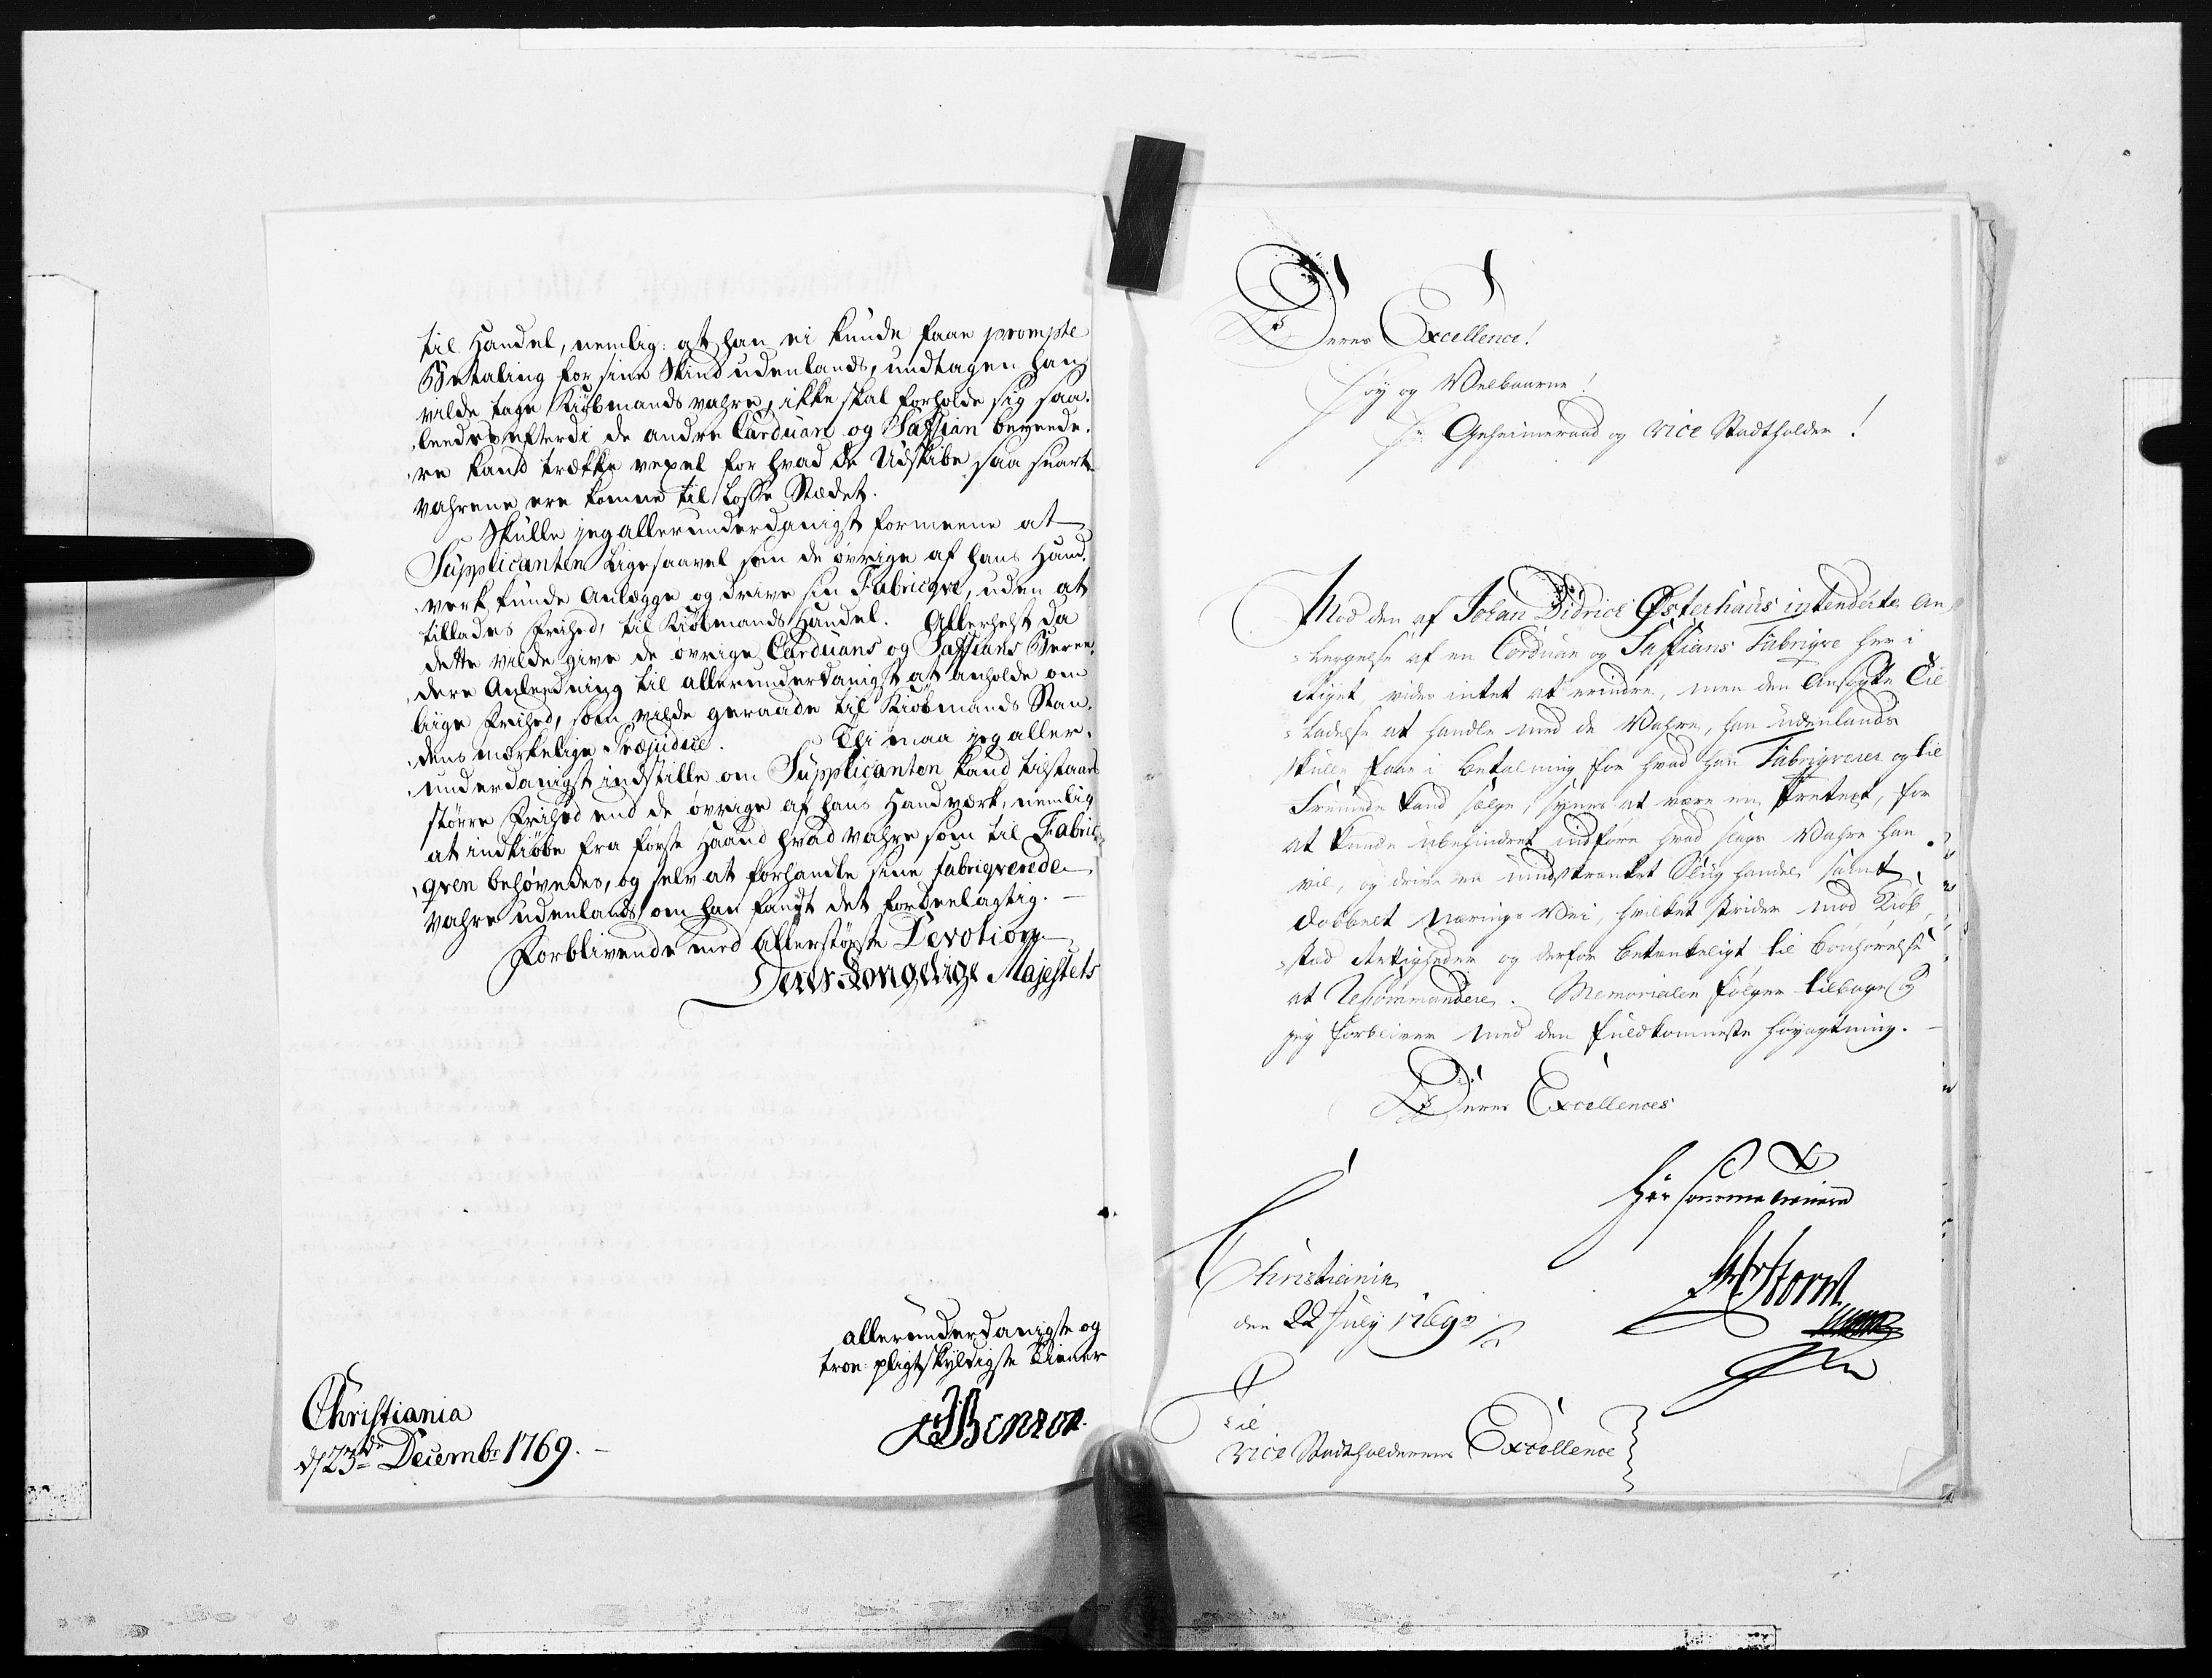 til Handel, nemlig: at han ei kunde faae prompte
Betaling for sine Skind udenlands, undtagen han
vilde tage Kiøbmands vahre, ikke skal forholde sig saa-
leedes efterdi de andre Carduan og Saffian bereede-
re kand trække vexel for hvad de Udskibe saa snart
vahrene ere komne til Losse Stædet.
Skulle jeg allerunderdanigst formeene at
Supplicanten Ligesaavel som de øvrige af hans Hand-
verk kunde Anlægge og drive sin Fabriqve, uden at
tillades Frihed, til Kiøbmands Handel. Allerhelst da
dette vilde give de øvrige Carduans og Saffians Beree-
dere Anleedning til allerunderdanigst at anholde om
liige Frihed, som vilde geraade til Kiøbmands Stan-
dens mærkelige Præjudice. Thi maa jeg aller-
underdanigst indstille om Supplicanten kand tilstaaes
større Frihed end de øvrige af hans Handværk, nemlig
at indkiøbe fra første Haand hvad vahre som til Fabri-
qven behøvedes, og selv at forhandle sine fabriqverede
vahre udenlands om han fandt det fordeelagtig. —
Forblivende med Allerstørste Devotion
Deres Kongelige Majestets
allerunderdanigste og
troe pligtskyldigste tienner
Christiania
d 23de Decembr 1769.
Deres Excellence!
Høy og Velbaarne!
Hr Geheimeraad og vice Stadtholder!
Mod den af Johan Didrich Østerhaus intenderte An-
læggelse af en Corduan og Saffians Fabriqve her i
Riget, vides intet at erindre, men den Ansøgte Til-
ladelse at handle med de Vahre, han udenlands
skulle faae i betalning for hvad han Fabriqverer og til
Fremede kand sælge, synes at være en Pretext, for
at kunde ubehindret indføre hvad slags Vahre han
vil, og drive en uindskrænket Slig handel samt
dobbelt Nærings Vei, hvilket strider mod Kiøb-
stæd Rettigheder og derfor betænkeligt til bønhørelse
at Recommendere. Memorialen følger tilbage og
jeg forbliver med den fuldkomneste høyagtning. —
Deres Excellences
Christiania
den 22 July 1769
Til
vice Stadtholderens Excellence